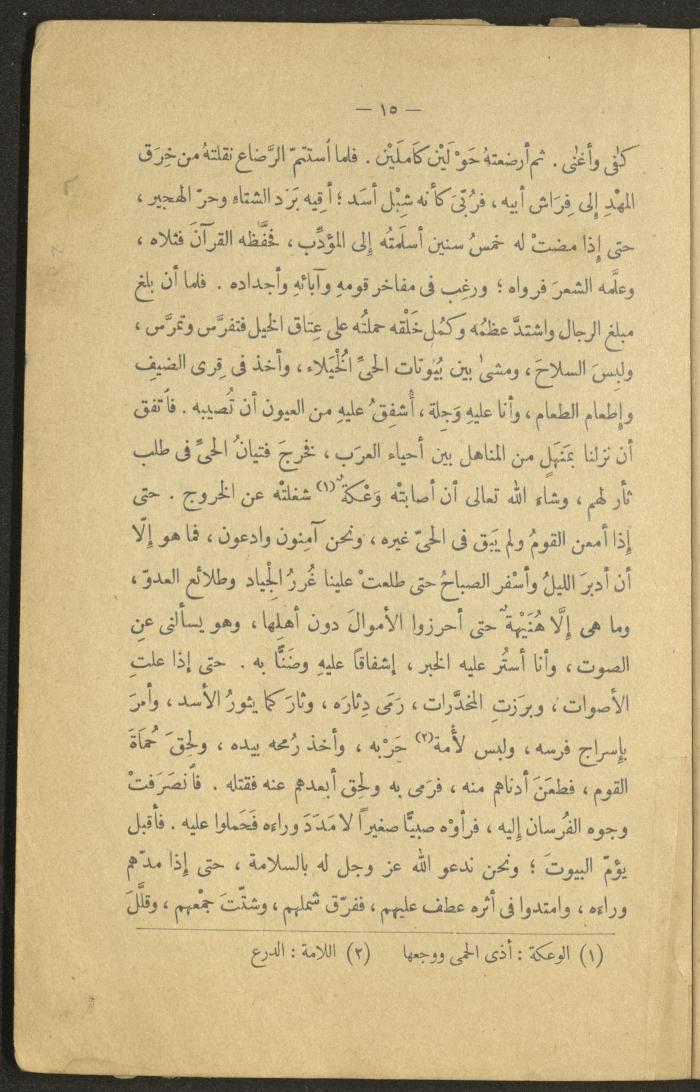 — ١٥ —
كفٰى وأغنٰى . ثم أرضعتهُ حَوْلَيْن كَاملَيْن . فلما اُستتمّ الرَّضاع نقلتهُ من خِرَق
المهْدِ إلى فِرَاش أبيه ، فرُبّىَ كأنه شِبْل أسَد ؛ أقِيه بَرْد الشتاءِ وحرّ الهجير ،
حتى إذا مضتْ له خمسُ سنين أسلَمتُه إلى المؤدِّب ، فحفَّظه القرآنَ فتلاه ،
وعلَّمه الشعرَ فرواه ؛ ورغِب فى مفاخر قومهِ وآبائهِ وأجداده . فلما أن بلغ
مبلغ الرجال واشتدَّ عظمُه وكمُل خَلْقه حملتُه على عِتاق الخيل فتفرَّس وتمرَّس ،
ولبِسَ السلاحَ ، ومشىٰ بين بُيُوتات الحىّ الُخْيَلاء ، وأخذ فى قِرى الضيفِ
وإطعام الطعام ، وأنا عليهِ وَجِلة ، أُشفِقُ عليهِ من العيون أن تُصيبه . فاٌتفق
أن نزلنا بمَنهَلٍ من المناهل بين أحياء العرَب ، فخرجَ فتيانُ الحىّ فى طلب
ثأر لهم ، وشاء الله تعالى أن أصابتْه وَعْكةٌ (١) شغلتْه عن الخروج . حتى
إذا أمعن القومُ ولم يَبق فى الحىّ غيره ، ونحن آمِنون وادعون ، فما هو إلّا
أن أدبرَ الليلُ وأسْفر الصباحُ حتى طلعتْ علينا غُررُ الْجياد وطلائع العدوّ ،
وما هى إلَّا هُنَيْهةٌ حتى أحرزوا الأموالَ دون أهلِها ، وهو يسألنى عنِ
الصوت ، وأنا أستُر عليه الخبر ، إشفاقاً عليهِ وضَنًّا به . حتى إذا علتِ
الأصوات ، وبرَزتِ المخدَّرات ، رَمَى دِثارَه ، وثارَ كما يثورُ الأسد ، وأمرَ
بإسراج فرسه ، ولبس لأْمة (٢) حَرْبه ، وأخذ رُمحه بيده ، ولحِقَ حُمَاةَ
القوم ، فطعَنَ أدناهم منه ، فرَمى به ولحِق أبعدهم عنه فقتله . فاٌنصَرَفتْ
وجوه الفُرسان إليه ، فرأوْه صبيًّا صغيراً لا مَدَدَ وراءه فَحَملوا عليه . فأقبل
يؤمّ البيوتَ ؛ ونحن ندعو الله عز وجل له بالسلامة ، حتى إذا مدّهم
وراءه ، وامتدوا فى أثره عطف عليهم ، ففرّق شملهم ، وشتّتَ جمْعهم ، وقلَّلَ
(١) الوعكة : أذى الحمى ووجعها (٢) اللامة : الدرع